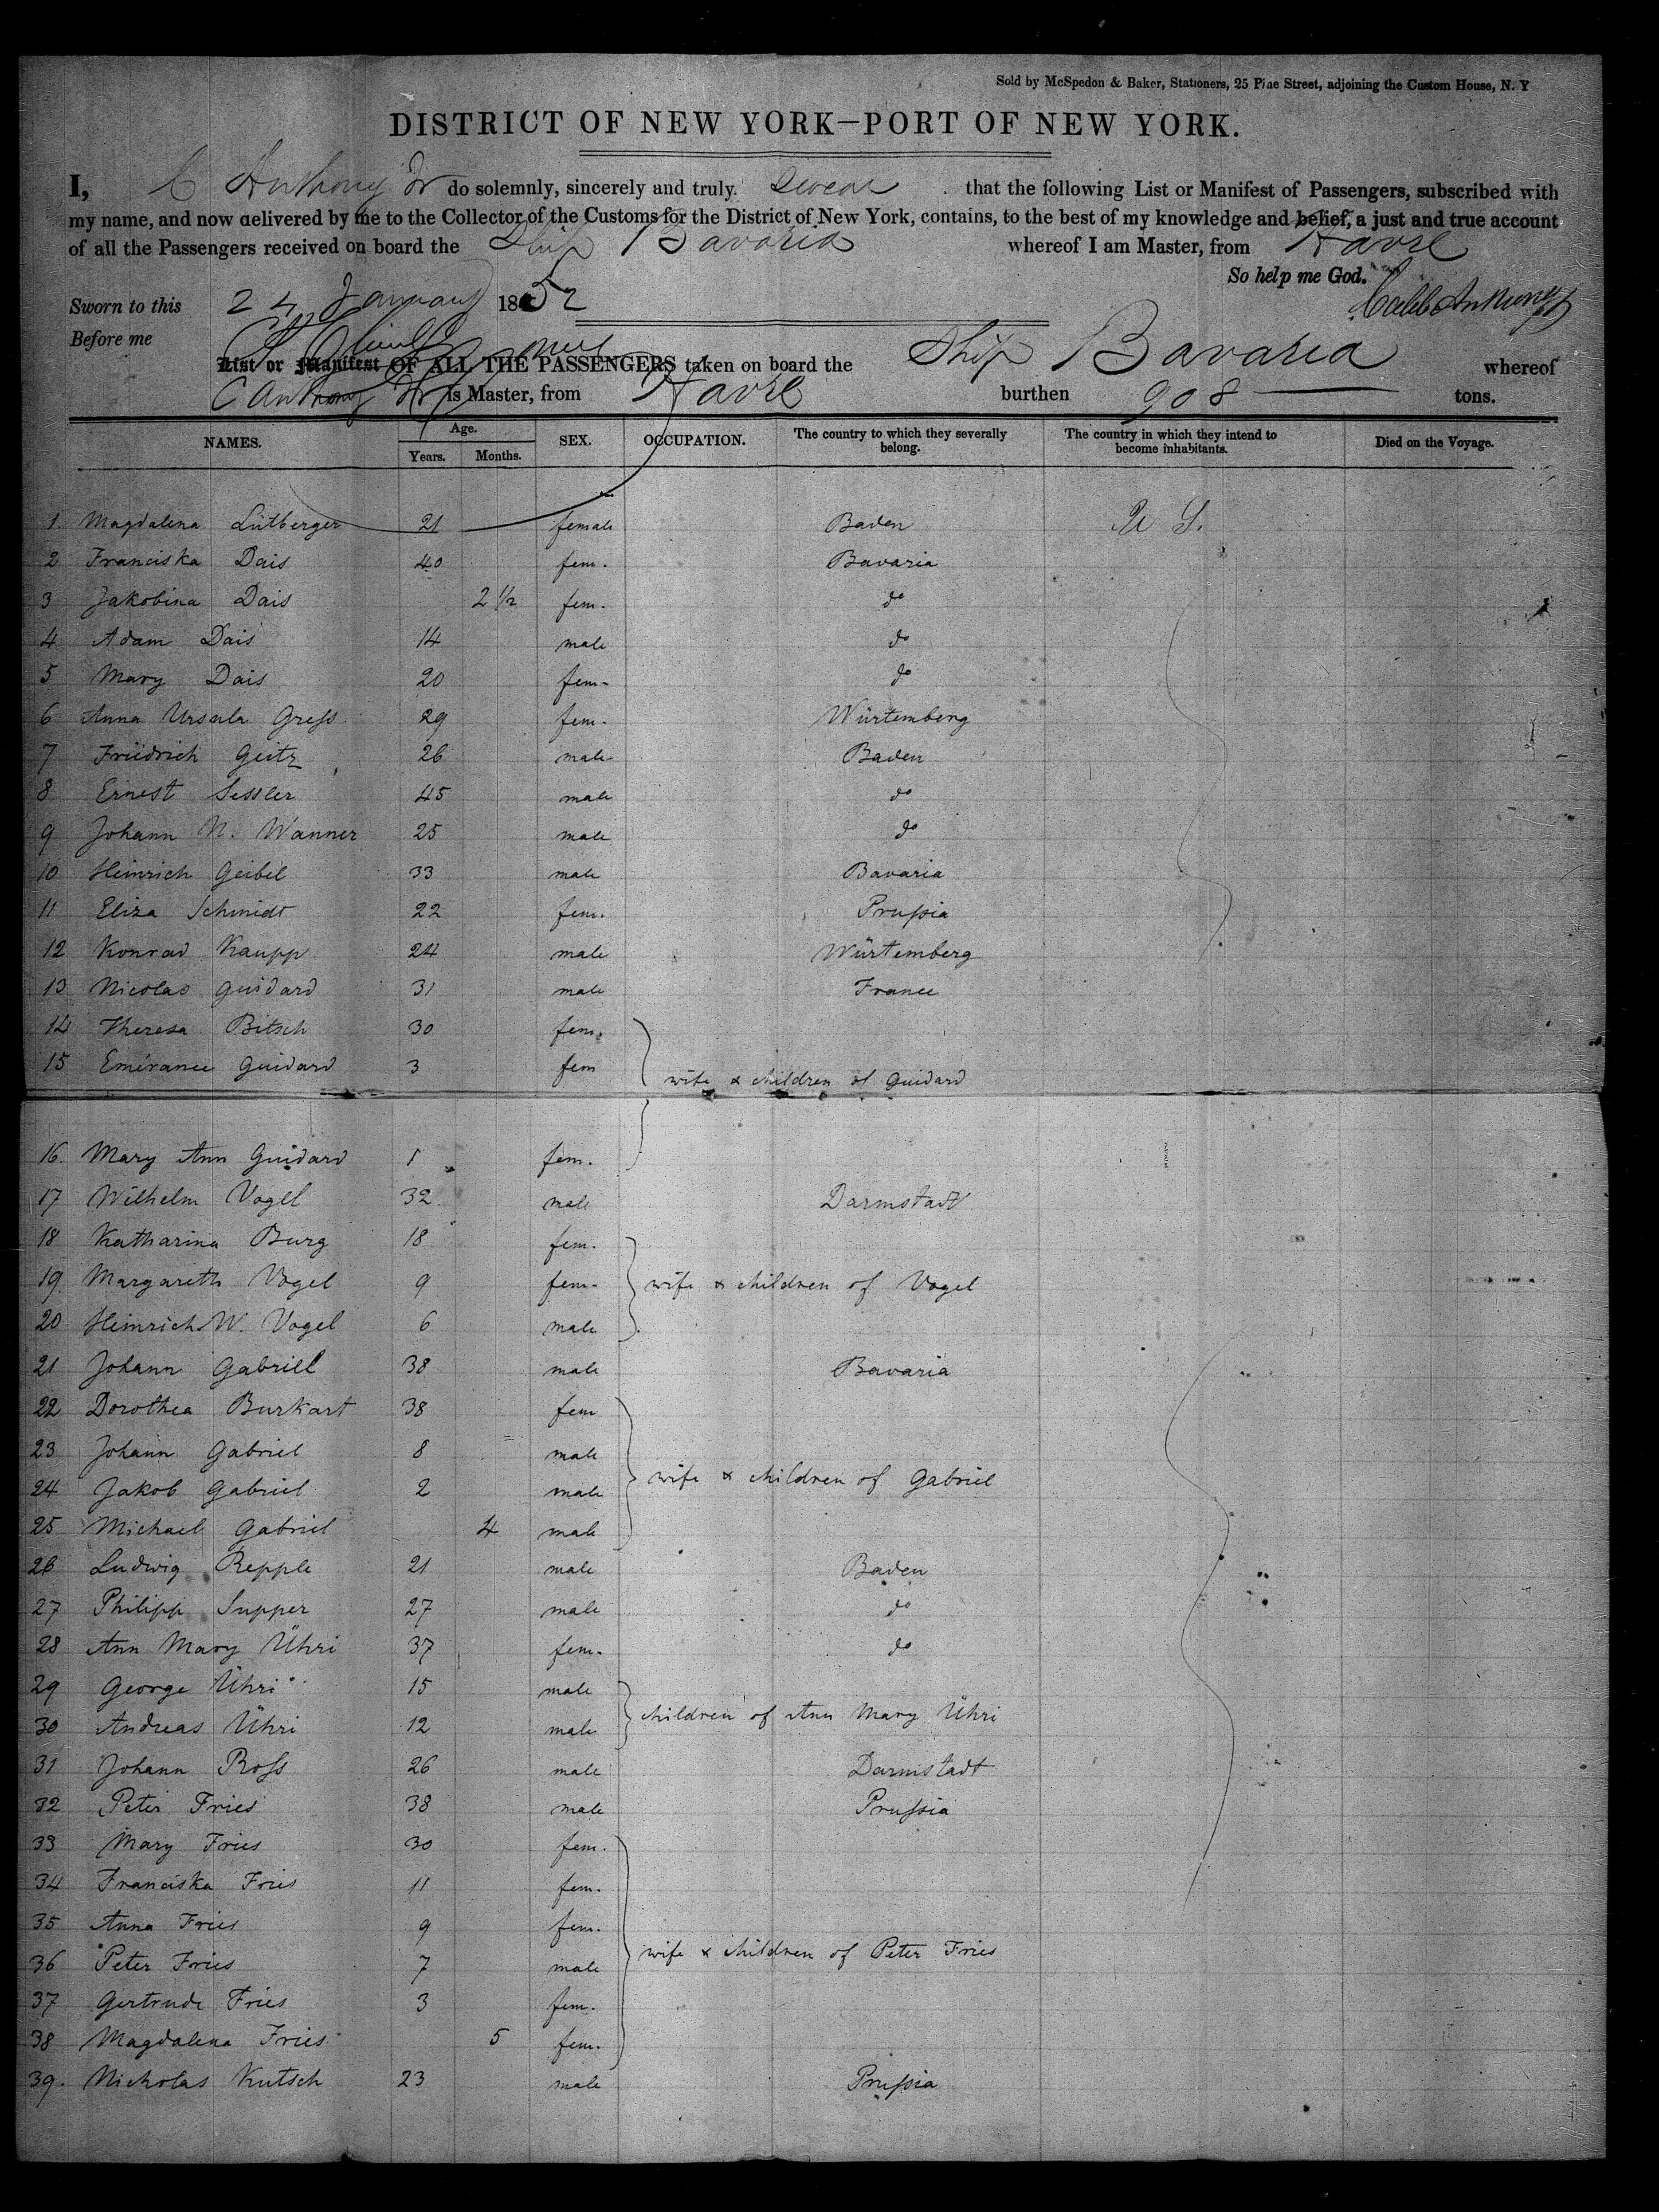 Sold by McSpedon & Baker, Stationers, 25 Pine Street, adjoining the Custom House, N. Y
DISTRICT OF NEW YORK—PORT OF NEW YORK.
I, C Anthony Jr do solemnly, sincerely and truly swear that the following List or Manifest of Passengers, subscribed with
my name, and now delivered by me to the Collector of the Customs for the District of New York, contains, to the best of my knowledge and belief, a just and true account
of all the Passengers received on board the Ship Bavaria whereof I am Master, from Havre
So help me God.
Sworn to this 24 January 1852 Caleb Anthony Jr
Before me
List or Manifest OF ALL THE PASSENGERS taken on board the Ship Bavaria whereof
C Anthony Jr is Master, from Havre burthen 908 tons.
NAMES. Age. Years. Months. SEX. OCCUPATION. The country to which they severally belong. The country in which they intend to become inhabitants. Died on the Voyage.
1 Magdalena Lütberger 21 female Baden U S.
2 Franciska Dais 40 fem. Bavaria
3 Jakobina Dais 2 1/2 fem. do
4 Adam Dais 14 male do
5 Mary Dais 20 fem. do
6 Anna Ursula Greſs 29 fem. Würtemberg
7 Friedrich Geitz 26 male Baden
8 Ernest Sessler 45 male do
9 Johann N. Wanner 25 male do
10 Heinrich Geibel 33 male Bavaria
11 Eliza Schmidt 22 fem. Pruſsia
12 Konrad Kaupp 24 male Würtemberg
13 Nicolas Guidard 31 male France
14 Theresa Bitsch 30 fem.
15 Emérance Guidard 3 fem wife & children of Guidard
16. Mary Ann Guidard 1 fem.
17 Wilhelm Vogel 32 male Darmstadt
18 Katharina Burg 18 fem.
19. Margareth Vogel 9 fem. wife & children of Vogel
20 Heinrich W. Vogel 6 male
21 Johann Gabriel 38 male Bavaria
22 Dorothea Burkart 38 fem
23 Johann Gabriel 8 male
24 Jakob Gabriel 2 male wife & children of Gabriel
25 Michael Gabriel 4 male
26 Ludwig Repple 21 male Baden
27 Philipp Supper 27 male do
28 Ann Mary Ühri 37 fem. do
29 George Ühri 15 male
30 Andreas Ühri 12 male children of Ann Mary Ühri
31 Johann Roſs 26 male Darmstadt
32 Peter Fries 38 male Pruſsia
33 Mary Fries 30 fem.
34 Franciska Fries 11 fem.
35 Anna Fries 9 fem.
36 Peter Fries 7 male wife & children of Peter Fries
37 Gertrude Fries 3 fem.
38 Magdalena Fries 5 fem.
39. Nicholas Kutsch 23 male Pruſsia